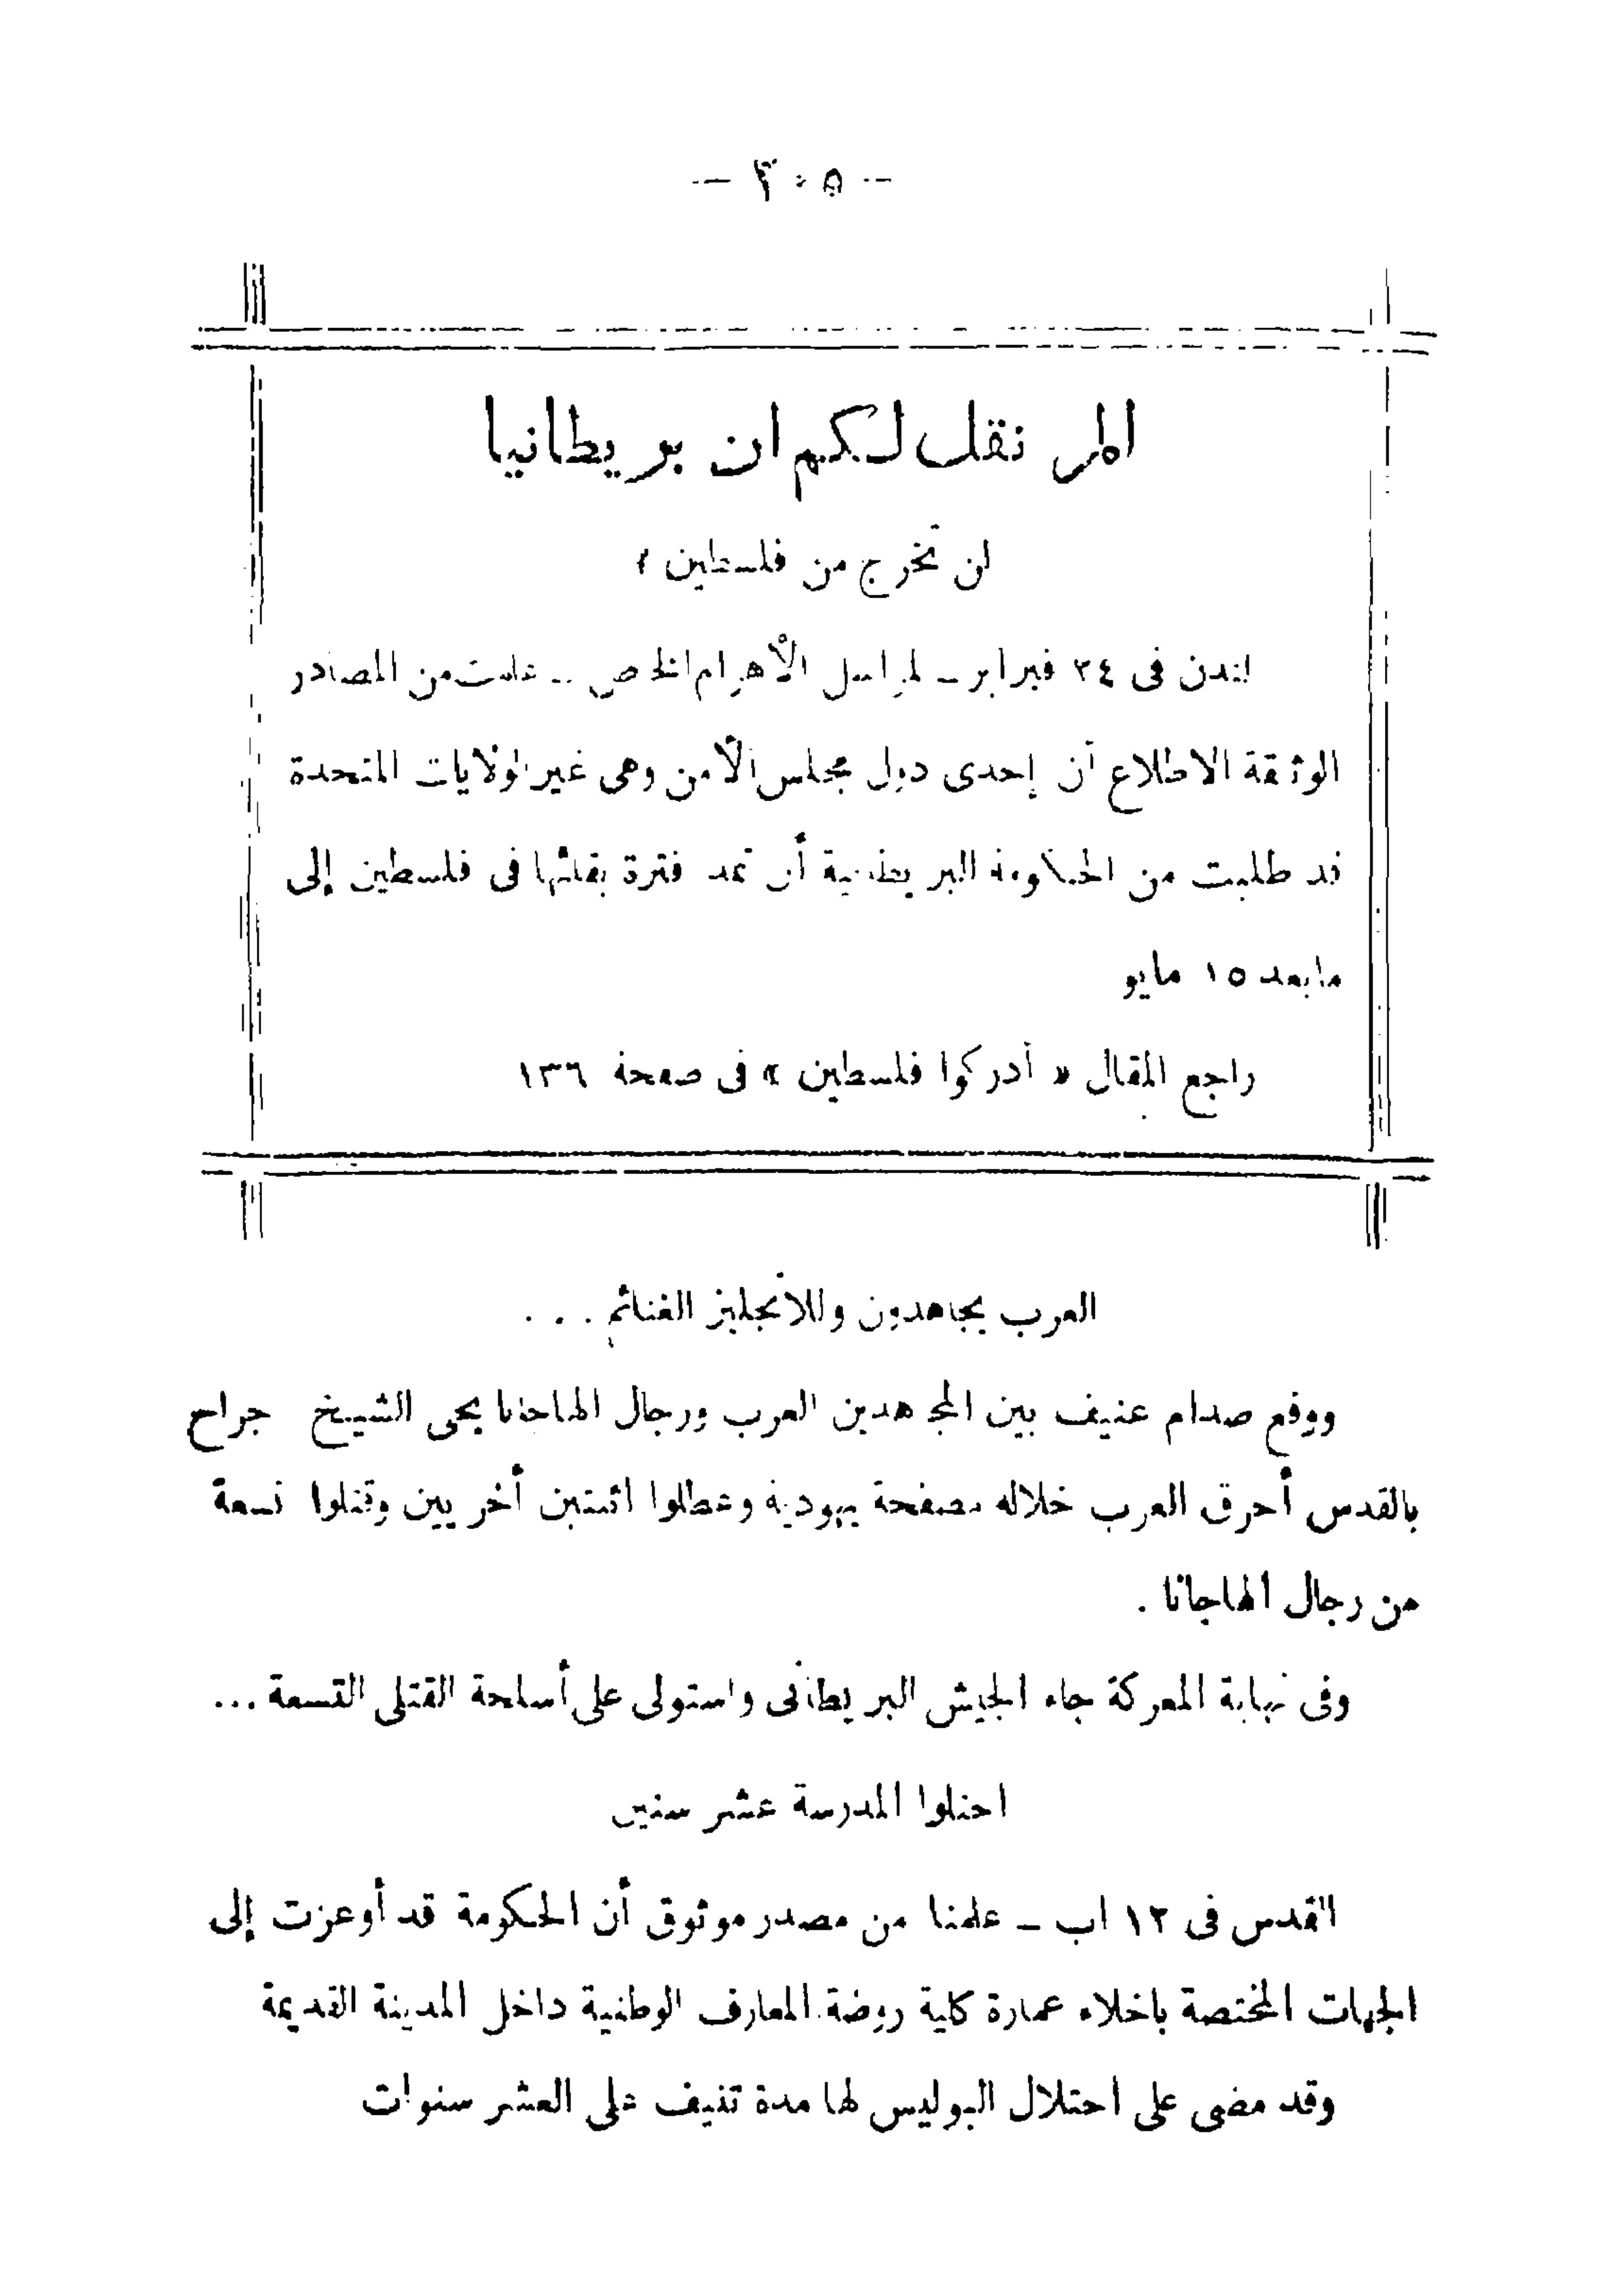 — ٣٠٥ —
الم نقل لكم ان بريطانيا
لن تخرج من فلسطين ؟
لندن فى ٢٤ فبراير ـ لمراسل الأهرام الخاص ـ علمت من المصادر
الوثيقة الاطلاع أن إحدى دول مجلس الأمن وهى غير الولايات المتحدة
قد طلبت من الحكومة البريطانية أن تمد فترة بقائها فى فلسطين إلى
مابعد ١٥ مايو
راجع المقال « أدركوا فلسطين » فى صفحة ١٣٦
العرب يجاهدون وللانجليز الغنائم . . .
ووقع صدام عنيف بين المجاهدين العرب ورجال الهاجانا بحى الشيخ جراح
بالقدس أحرق العرب خلاله مصفحة يهودية وعطلوا اثنتين أخريين وقتلوا تسعة
من رجال الهاجانا .
وفى نهاية المعركة جاء الجيش البريطانى واستولى على أسلحة القتلى التسعة ...
احتلوا المدرسة عشر سنين
القدس فى ١٢ اب ـ علمنا من مصدر موثوق أن الحكومة قد أوعزت إلى
الجهات المختصة باخلاء عمارة كلية روضة المعارف الوطنية داخل المدينة القديمة
وقد مضى على احتلال البوليس لها مدة تنيف على العشر سنوات